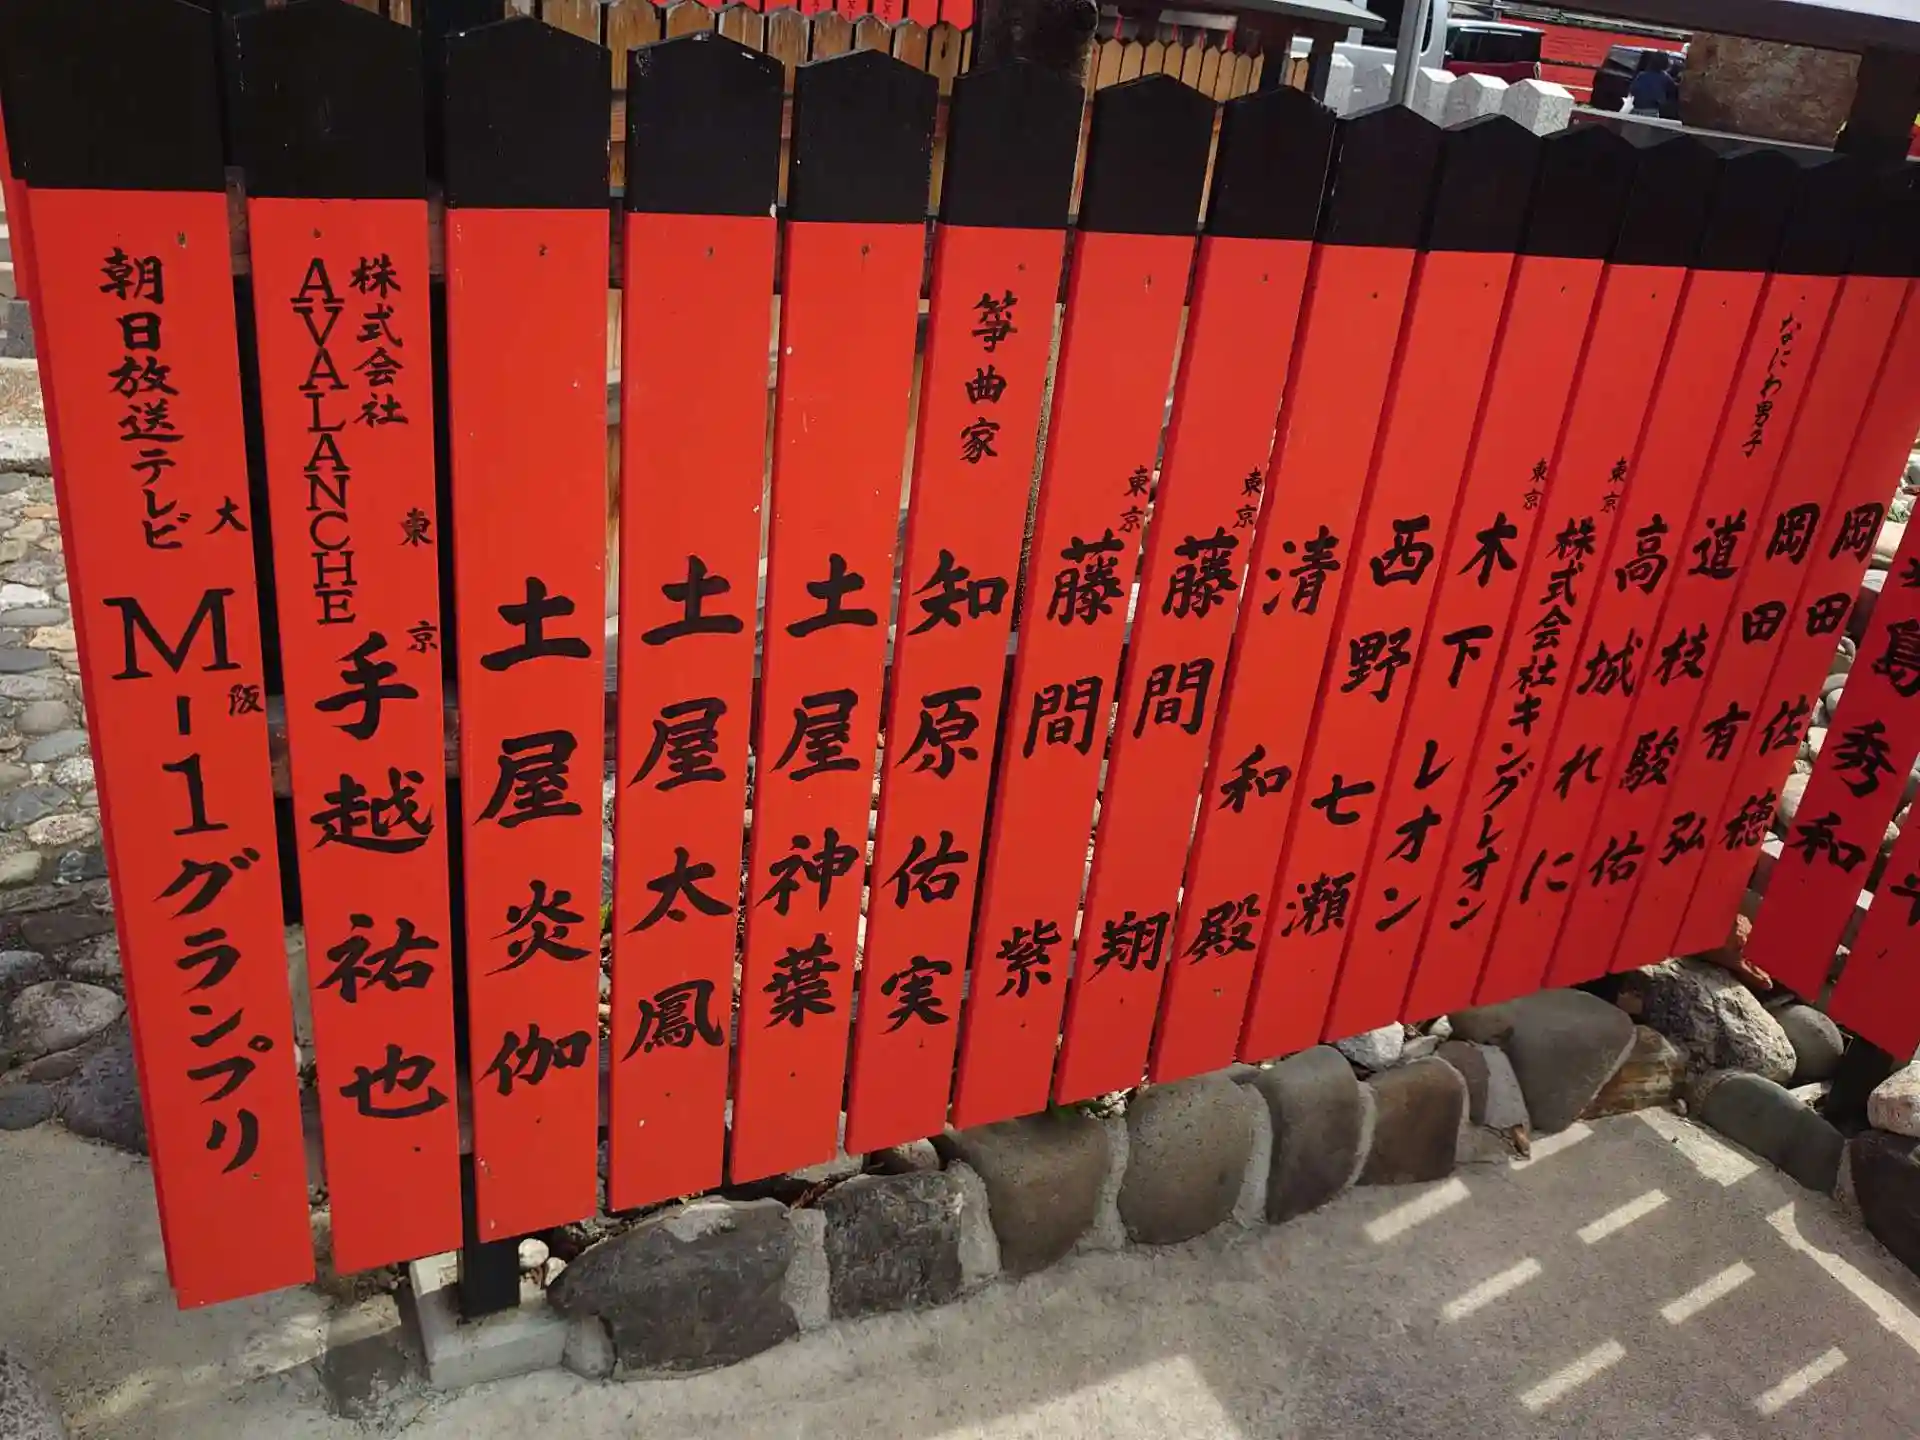 朝日放送テレビ
大阪
M-1グランプリ
株式会社
AVALANCHE
東京
手越祐也
土屋炎伽
土屋太鳳
土屋神葉
箏曲家
知原佑実
東京
藤間紫
東京
藤間翔
清和殿
西野七瀬
木下レオン
東京
株式会社キングレオン
東京
高城れに
道枝駿佑
なにわ男子
岡田有弘
岡田佐穂
秀和